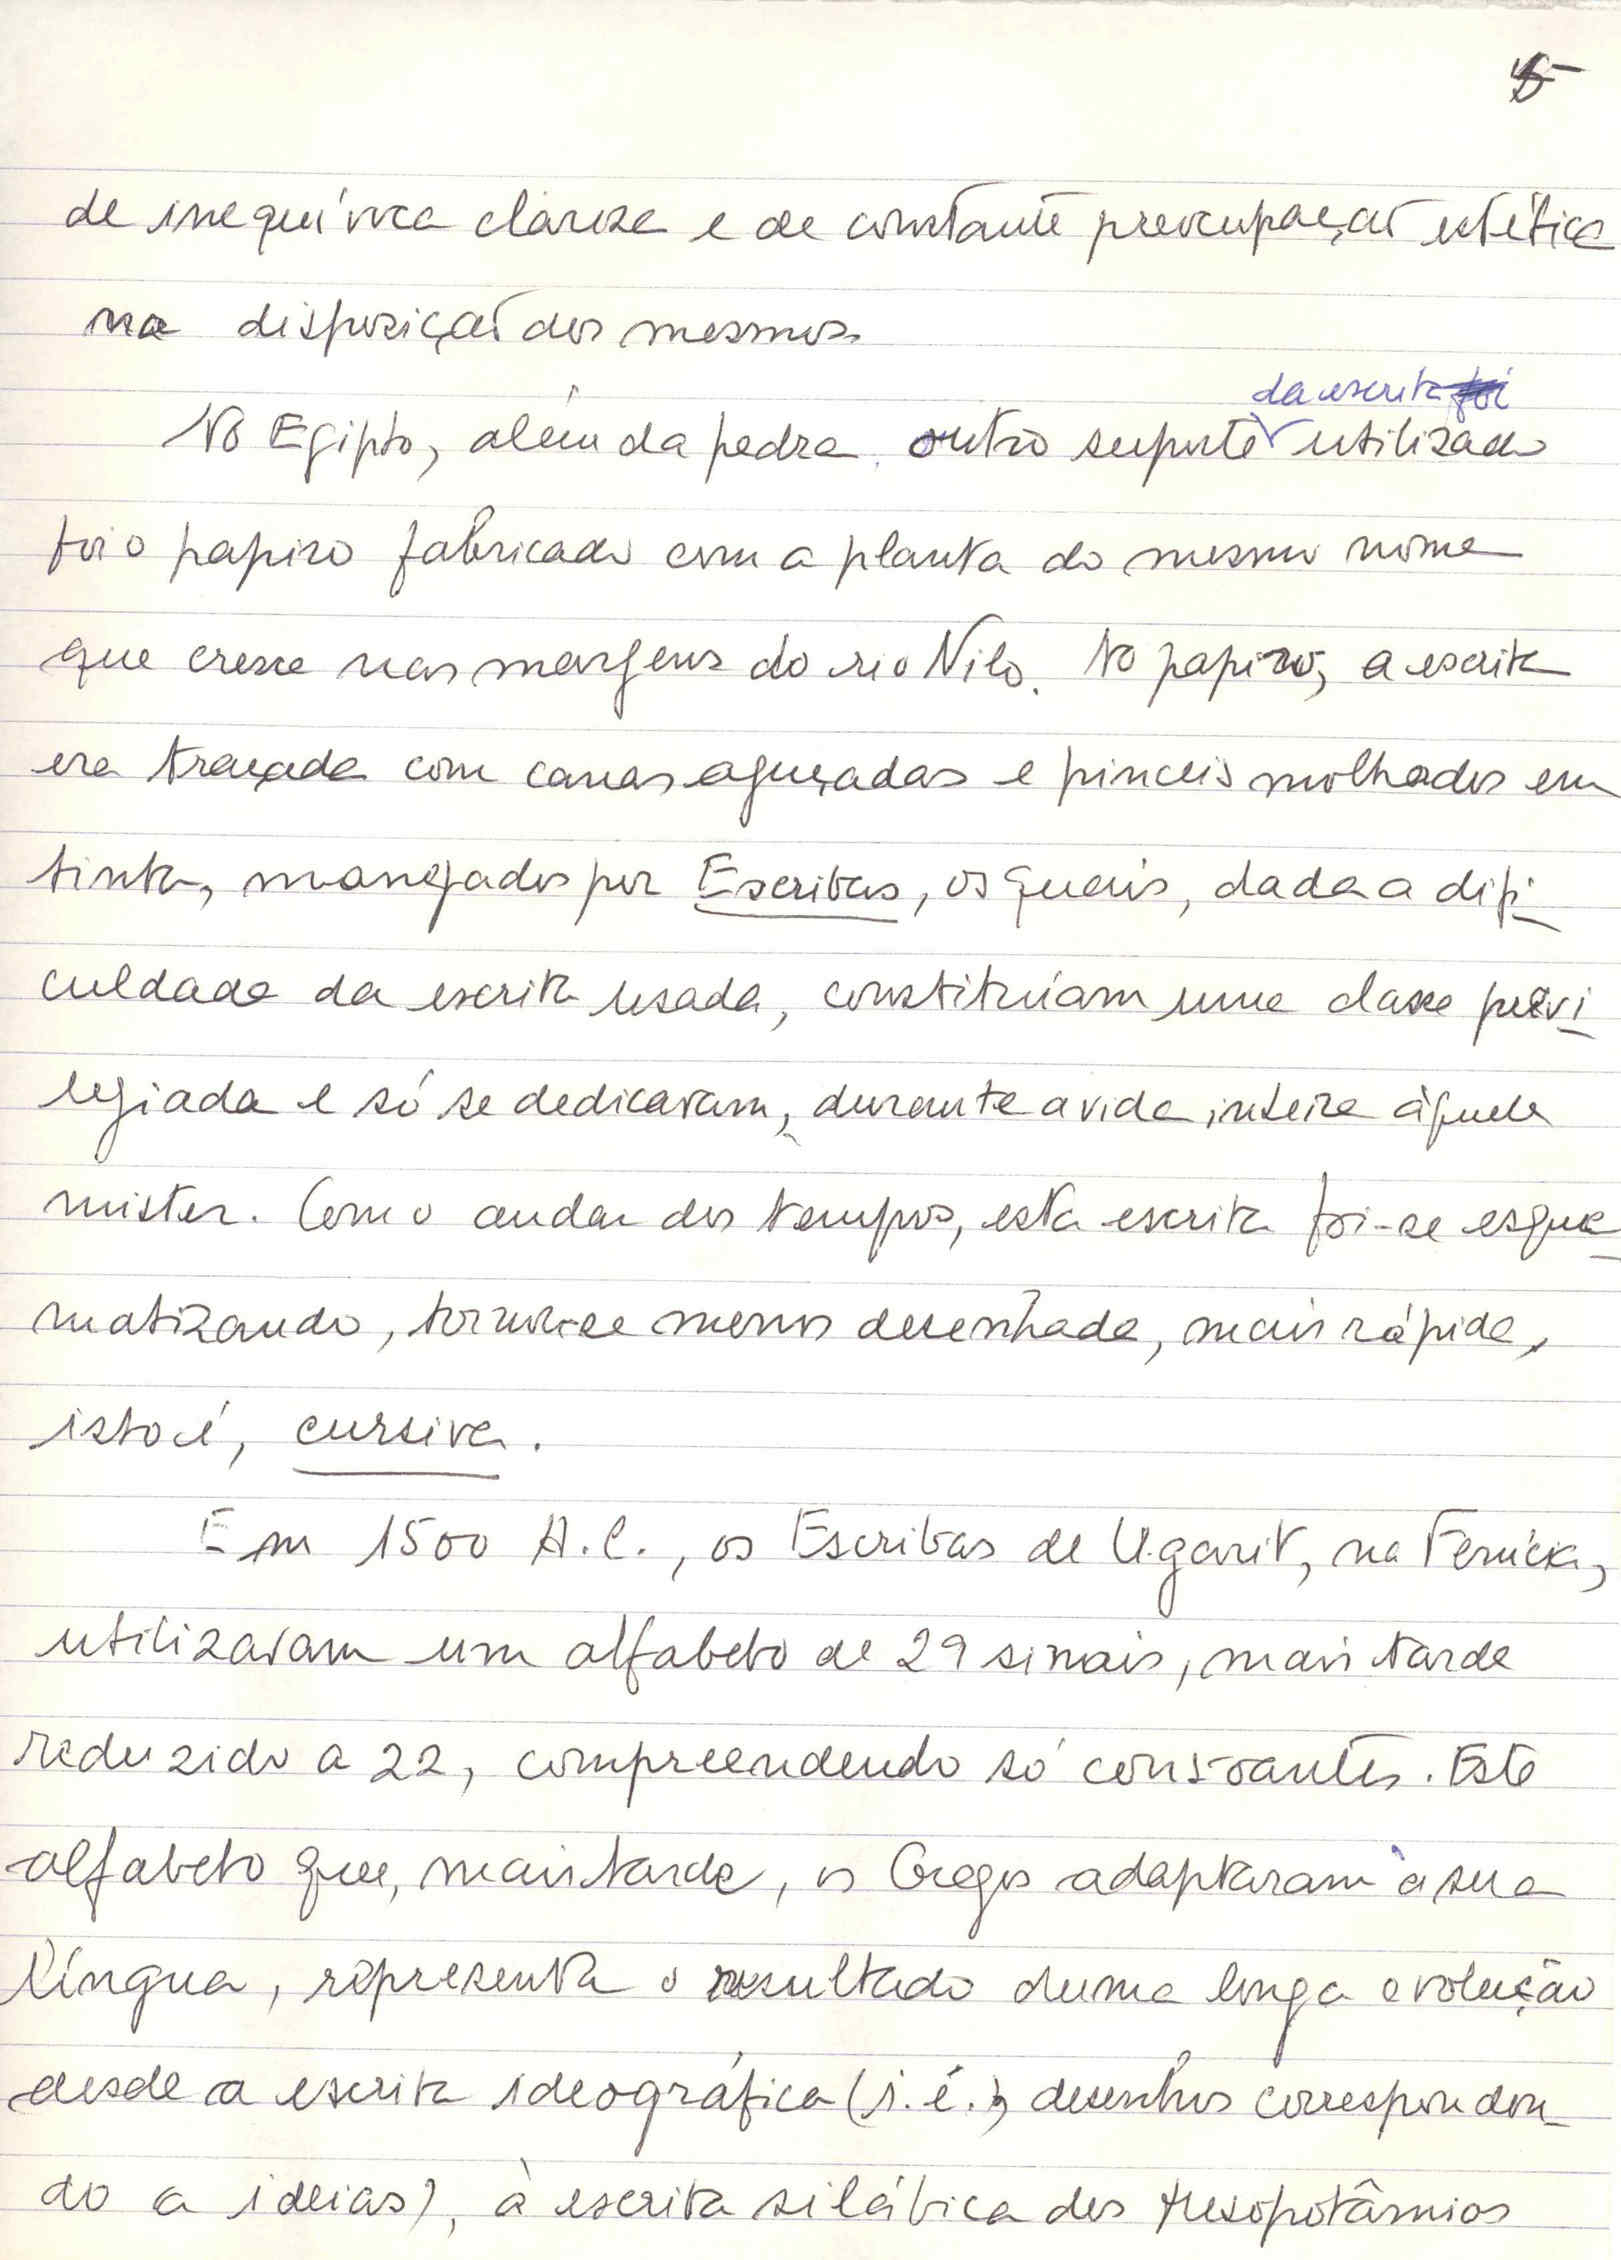 5
de inequívoca clareza e de constante preocupação estética
na disposição dos mesmos.
da escrita foi
No Egipto, além da pedra, outro suporte utilizado
foi o papiro fabricado com a planta do mesmo nome
que cresce nas margens do rio Nilo. No papiro, a escrita
era traçada com canas aguçadas e pinceis molhados em
tinta, manejados por Escribas, os quais, dada a difi
culdade da escrita usada, constituíam uma classe privi
legiada e só se dedicavam, durante a vida inteira àquele
mister. Com o andar dos tempos, esta escrita foi-se esque
matizando, tornou-se menos desenhada, mais rápida,
isto é, cursiva.
Em 1500 A.C., os Escribas de Ugarit, na Fenícia,
utilizavam um alfabeto de 29 sinais, mais tarde
reduzido a 22, compreendendo só consoantes. Este
alfabeto que, mais tarde, os Gregos adaptaram à sua
língua, representa o resultado duma longa evolução
desde a escrita ideográfica (i.é., desenhos correspondon
do a ideias), à escrita silábica dos Mesopotâmios